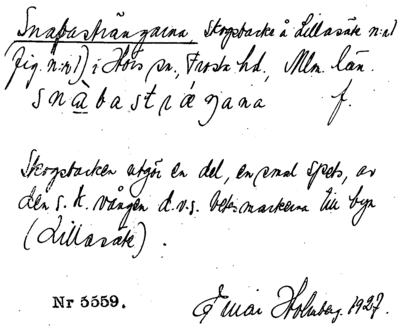 Snabasträngarna, Skogsbacke å Lillasäte n:o 1
fig. n:o 1) i Hörs sn, Frosta hd, Mlm. län.
snàbastrǽŋana f.
Skogsbacken utgör en del, en smal spets, av
den s. k. vången d.v.s. betesmarkerna till byn
(Lillasäte).
Nr 5559.
Ingmar Holmberg. 1927.